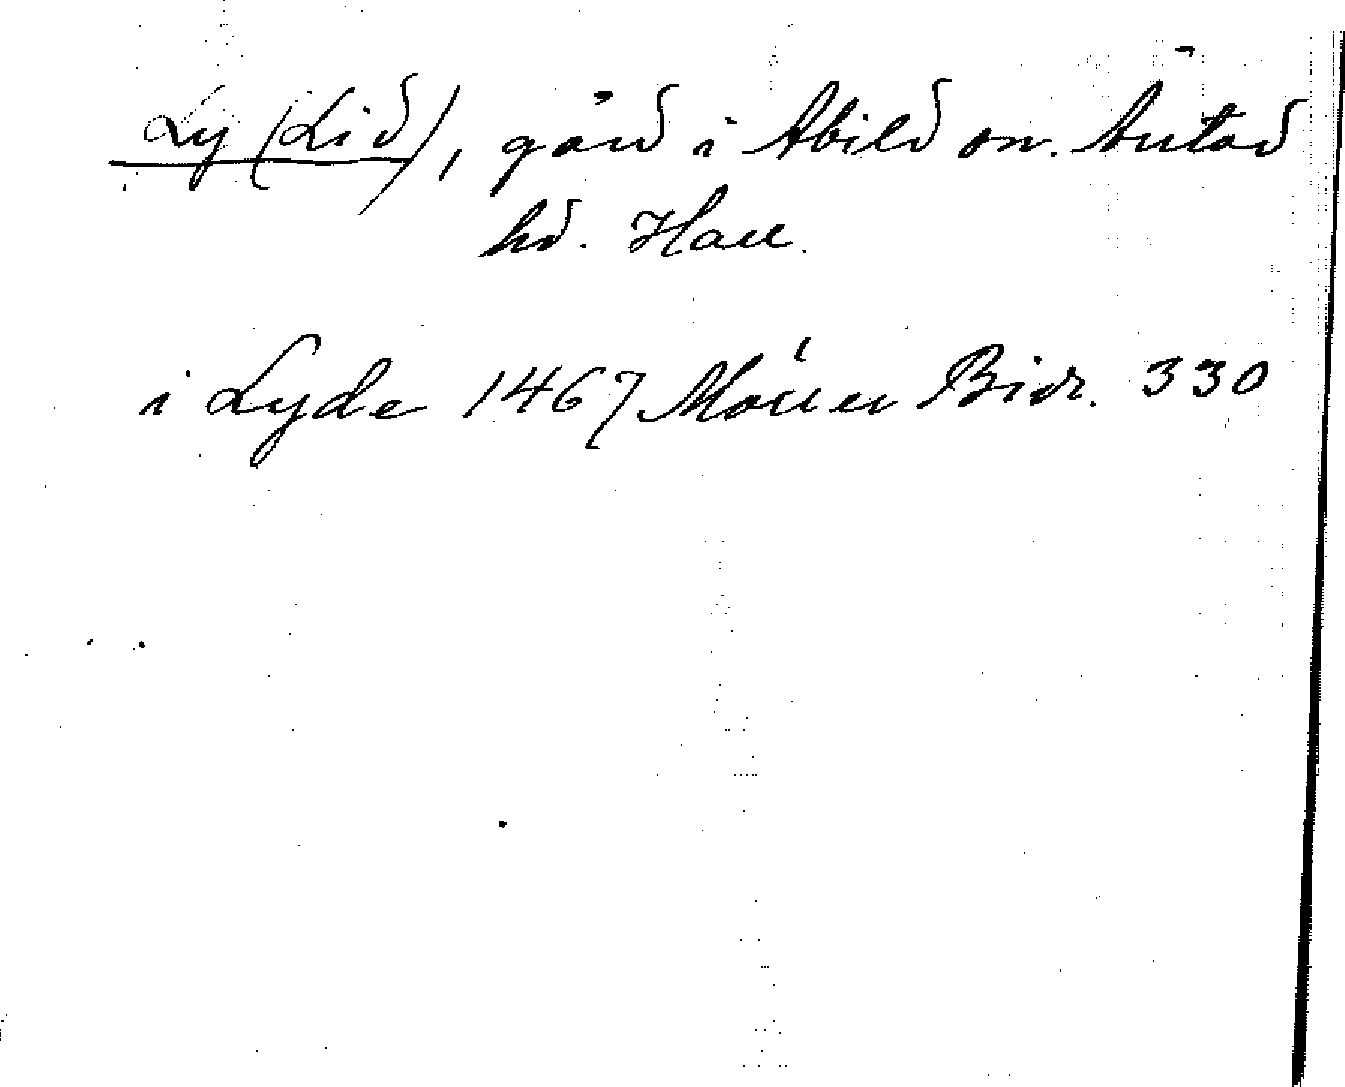 Ly (Lid), gård i Abild sn. Årstad
hd. Hall.
i Lyde 1467 Möller Bidr. 330